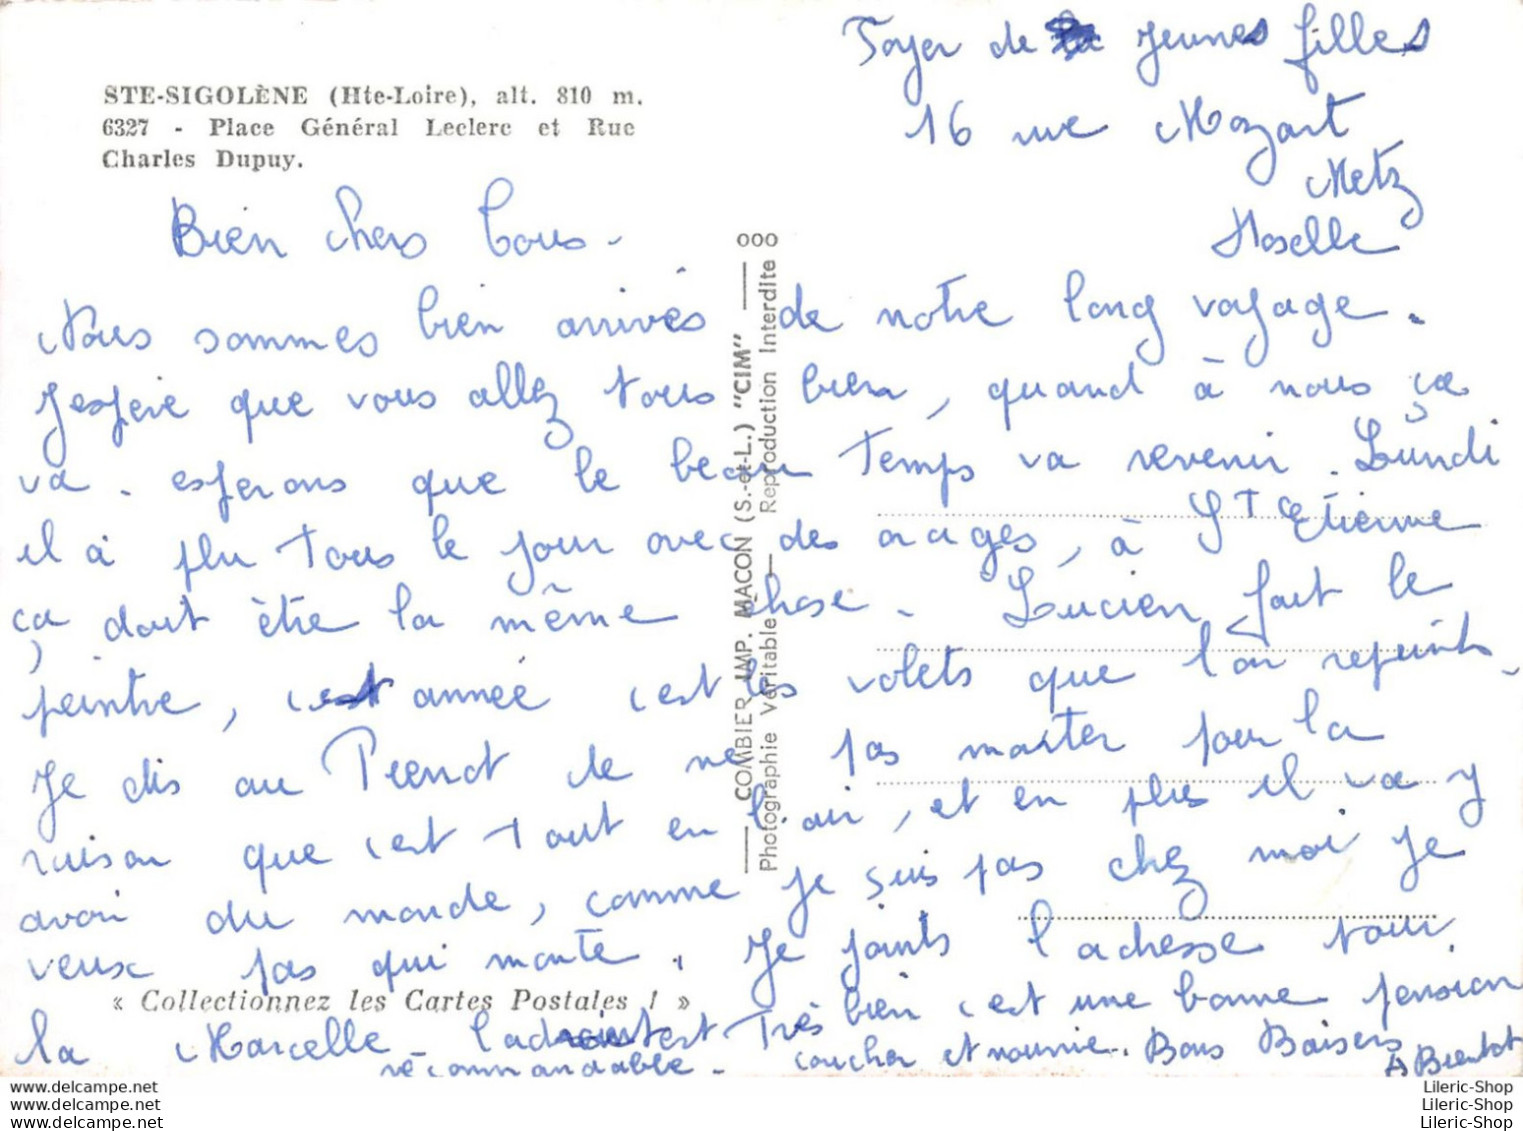 Foyer de jeunes filles
16 rue Mozart
Metz
Moselle
STE-SIGOLÈNE (Hte-Loire), alt. 810 m.
6327 - Place Général Leclerc et Rue
Charles Dupuy.
Bien chers tous -
Nous sommes bien arrivés de notre long voyage.
J'espère que vous allez tous bien, quand à nous ça
va - esperons que le beau temps va revenir. Lundi
il à plu tous le jour avec des orages, à St Etienne
ça doit être la même chose - Lucien fait le
peintre, cest année c'est les volets que l'on repeints.
Je dis au Pienot de ne pas monter pour la
raison que c'est tout en l'air, et en plus il va y
avoir du monde, comme je suis pas chez moi je
veux pas qui monte. Je joints l'adresse pour
la Marcelle est Très bien c'est une bonne pension
recommandable - coucher et nourrie. Bons Baisers
A Bientot
COMBIER IMP. MACON (S.-et-L.) "CIM"
Photographie Véritable — Reproduction Interdite
ooo
« Collectionnez les Cartes Postales ! »
www.delcampe.net
www.delcampe.net
www.delcampe.net
Lileric-Shop
Lileric-Shop
Lileric-Shop